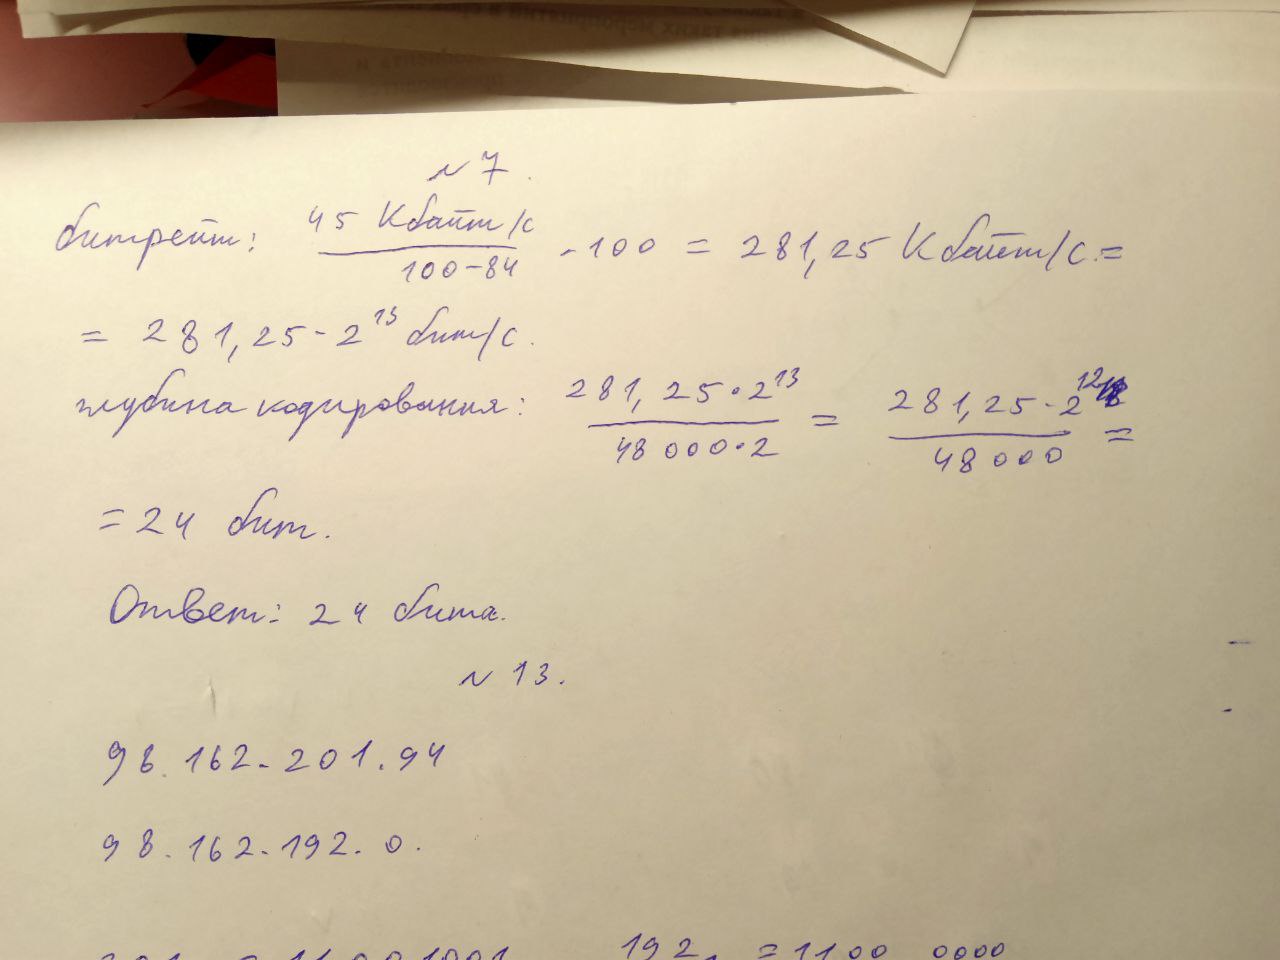 № 7.
битрейт: 45 Кбайт/с / 100-84 · 100 = 281,25 Кбайт/с. =
= 281,25 · 2^13 бит/с.
глубина кодирования: 281,25 · 2^13 / 48000 · 2 = 281,25 · 2^12 / 48000 =
= 24 бит.
Ответ: 24 бита.
№ 13.
98.162.201.94
98.162.192.0.
192 = 1100 0000